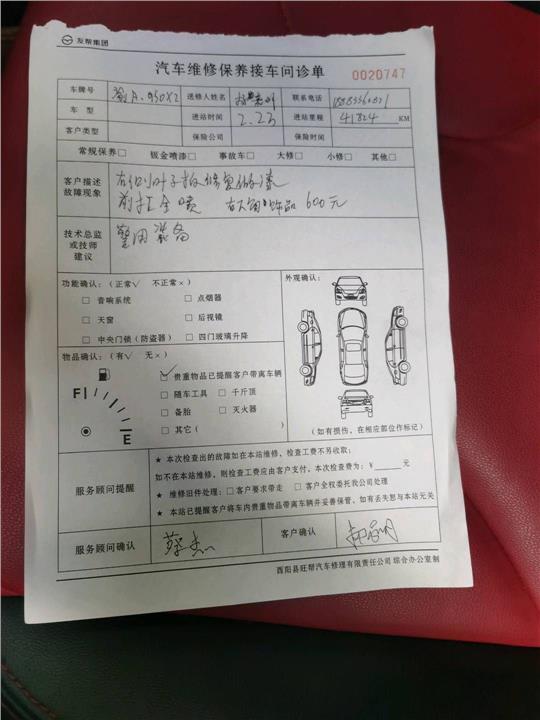 友帮集团
汽车维修保养接车问诊单 0020747
车牌号 渝A·950X2 送修人姓名 联系电话
车 型 进站时间 2.23 进站里程 41824 KM
客户类型 保险公司 保险时间
常规保养□ 钣金喷漆□ 事故车□ 大修□ 小修□ 其他□
客户描述 右侧叶子板修复做漆
故障现象 前杠全喷 饰品 600元
技术总监 警用装备
或技师
建议
功能确认:(正常√ 不正常×) 外观确认:
□ 音响系统 □ 点烟器
□ 天窗 □ 后视镜
□ 中央门锁(防盗器) □ 四门玻璃升降
物品确认:(有√ 无×)
□ 贵重物品已提醒客户带离车辆
F □ 随车工具 □ 千斤顶
□ 备胎 □ 灭火器
E □ 其它( )
(如有损伤,在相应部位作标记)
★ 本次检查出的故障如在本站维修,检查工费不另收取;
如不在本站维修,则检查工费应由客户支付,本次检查费为:¥______元
服务顾问提醒 ★ 维修旧件处理:□ 客户要求带走 □ 客户全权委托我公司处理
★ 本站已提醒客户将车内贵重物品带离车辆并妥善保管,如有丢失恕与本站无关
服务顾问确认 蔡杰 客户确认
酉阳县旺帮汽车修理有限责任公司 综合办公室制